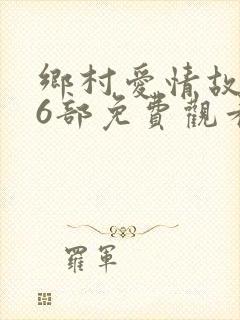 鄉村愛情故
6部免費觀
羅軍